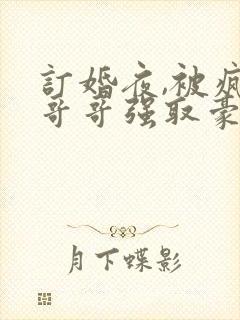 訂婚夜,被疯
哥哥强取豪
月下蝶影